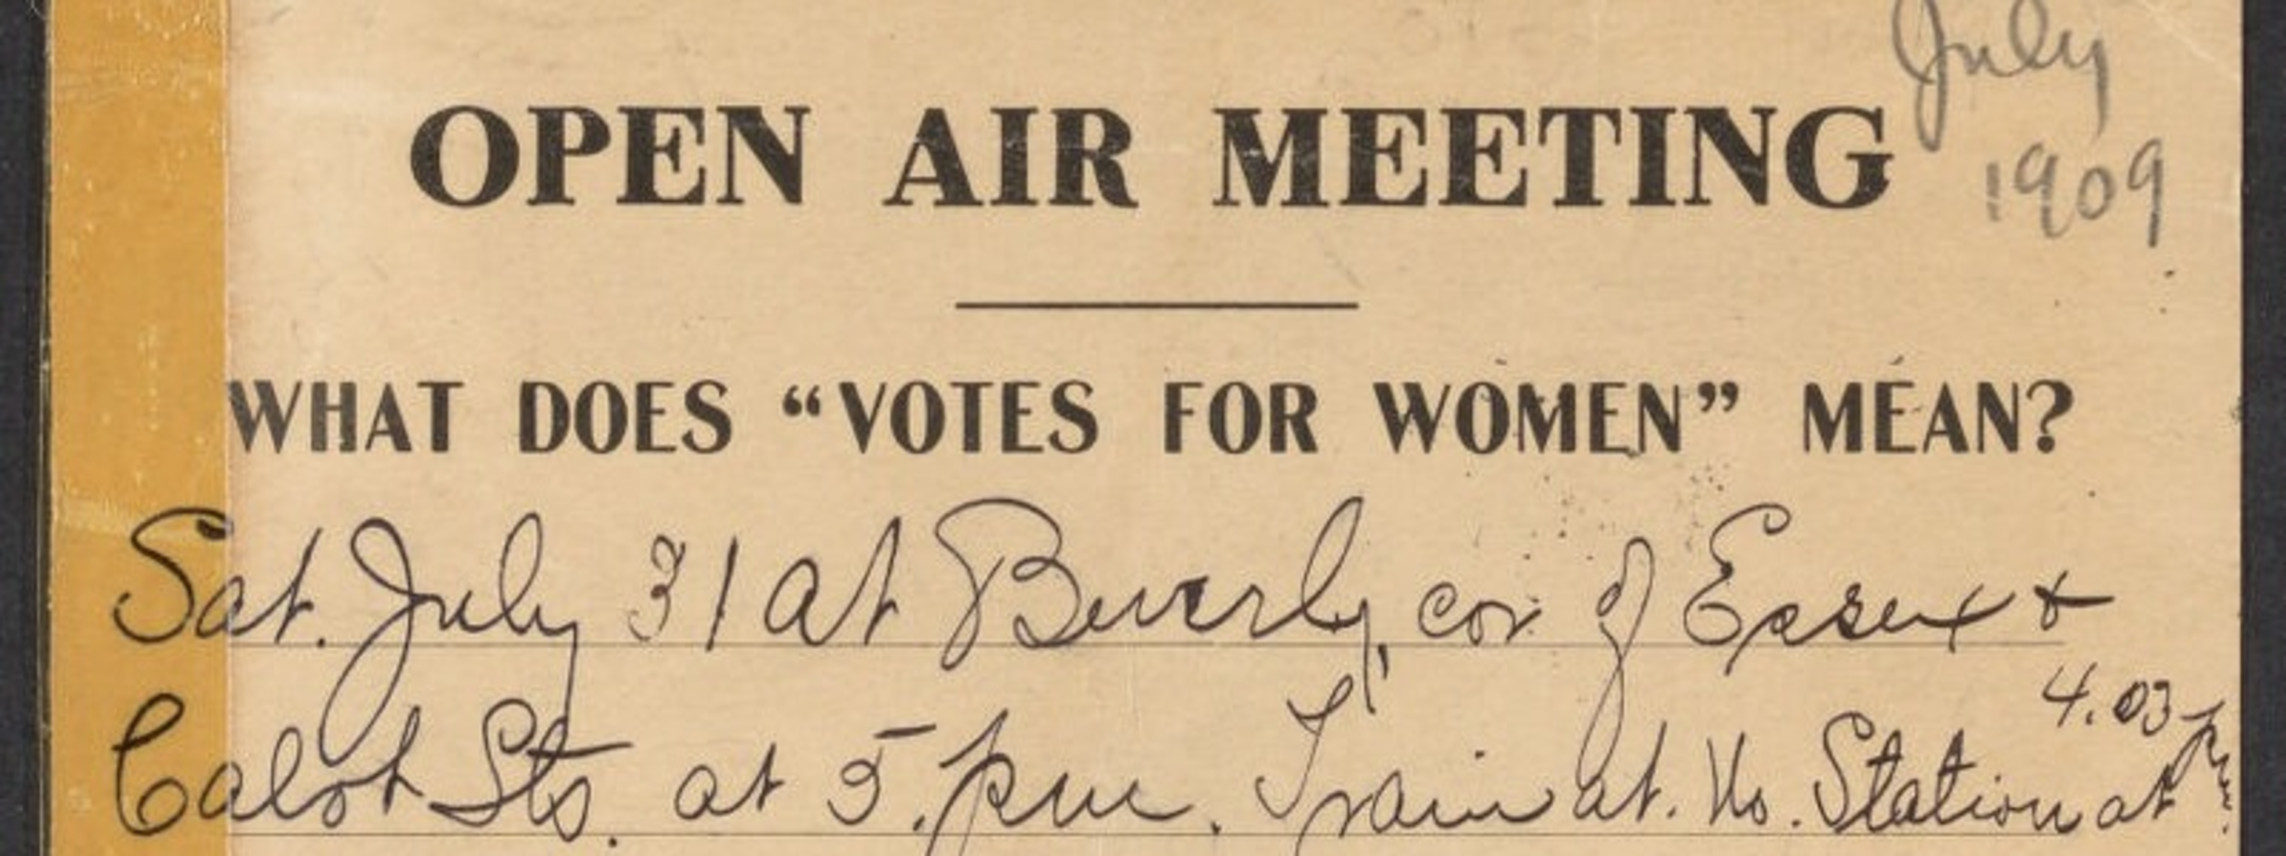 July
1909
OPEN AIR MEETING
WHAT DOES “VOTES FOR WOMEN” MEAN?
Sat. July 31 at Beverly, cor. of Essex &
Cabot Sts. at 5. pm. Train at. No. Station at
4.03 pm.